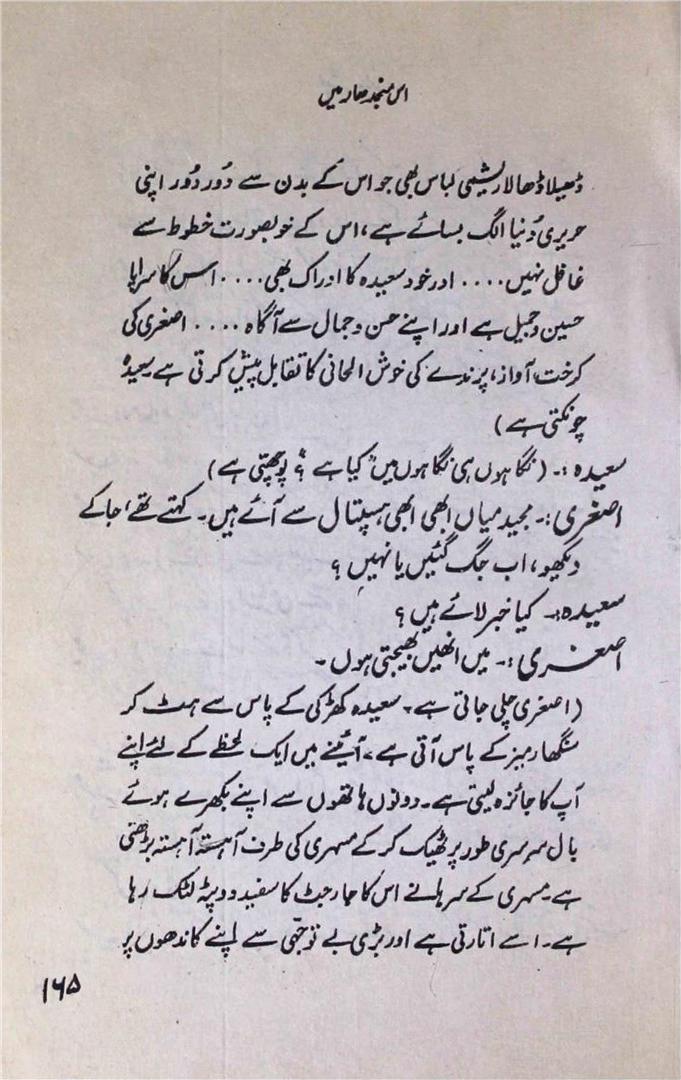 اس منجدھار میں
ڈھیلا ڈھالا ریشمی لباس بھی جو اس کے بدن سے دُور دُور اپنی
حریری دُنیا الگ بسائے ہے، اس کے خوبصورت خطوط سے
غافل نہیں .... اور خود سعیدہ کا ادراک بھی .... اس کا سراپا
حسین و جمیل ہے اور اپنے حسن و جمال سے آگاہ .... اصغری کی
کرخت آواز، پرندے کی خوش الحانی کا تقابل پیش کرتی ہے سعیدہ
چونکتی ہے)
سعیدہ :۔ (نگاہوں ہی نگاہوں میں "کیا ہے؟" پوچھتی ہے)
اصغری :۔ مجید میاں ابھی ابھی ہسپتال سے آئے ہیں۔ کہتے تھے، جا کے
دیکھو، اب جگ گئیں یا نہیں ؟
سعیدہ :۔ کیا خبر لائے ہیں ؟
اصغری :۔ میں انھیں بھیجتی ہوں ۔
(اصغری چلی جاتی ہے۔ سعیدہ کھڑکی کے پاس سے ہٹ کر
سنگھار میز کے پاس آتی ہے، آئینے میں ایک لحظے کے لئے اپنے
آپ کا جائزہ لیتی ہے۔ دونوں ہاتھوں سے اپنے بکھرے ہوئے
بال سرسری طور پر ٹھیک کر کے مسہری کی طرف آہستہ آہستہ بڑھتی
ہے۔ مسہری کے سرہانے اس کا جارجٹ کا سفید دوپٹہ لٹک رہا
ہے۔ اسے اتارتی ہے اور بڑی بے توجہی سے اپنے کاندھوں پر
۱۶۵